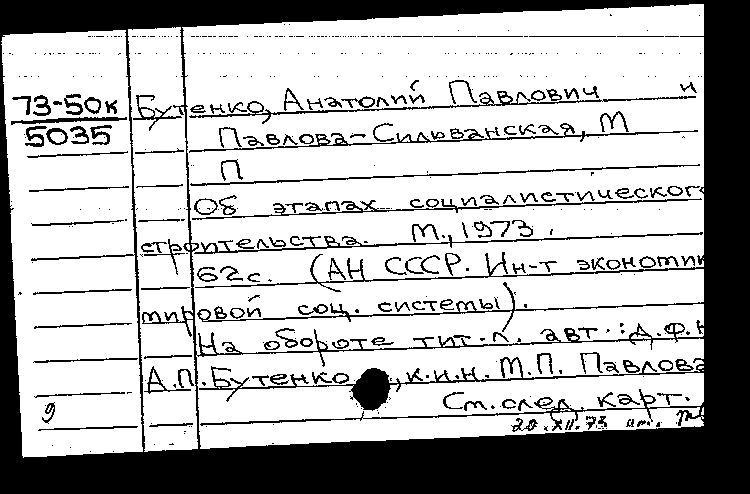 73-50к
5035
Бутенко, Анатолий Павлович и
Павлова-Сильванская, М
П
Об этапах социалистического
строительства. М., 1973.
62 с. (АН СССР. Ин-т экономик
мировой соц. системы).
На обороте тит. л. авт.: д.ф.н
А.П. Бутенко, к.и.н. М.П. Павлова
См. след. карт.
9
20.XII.73